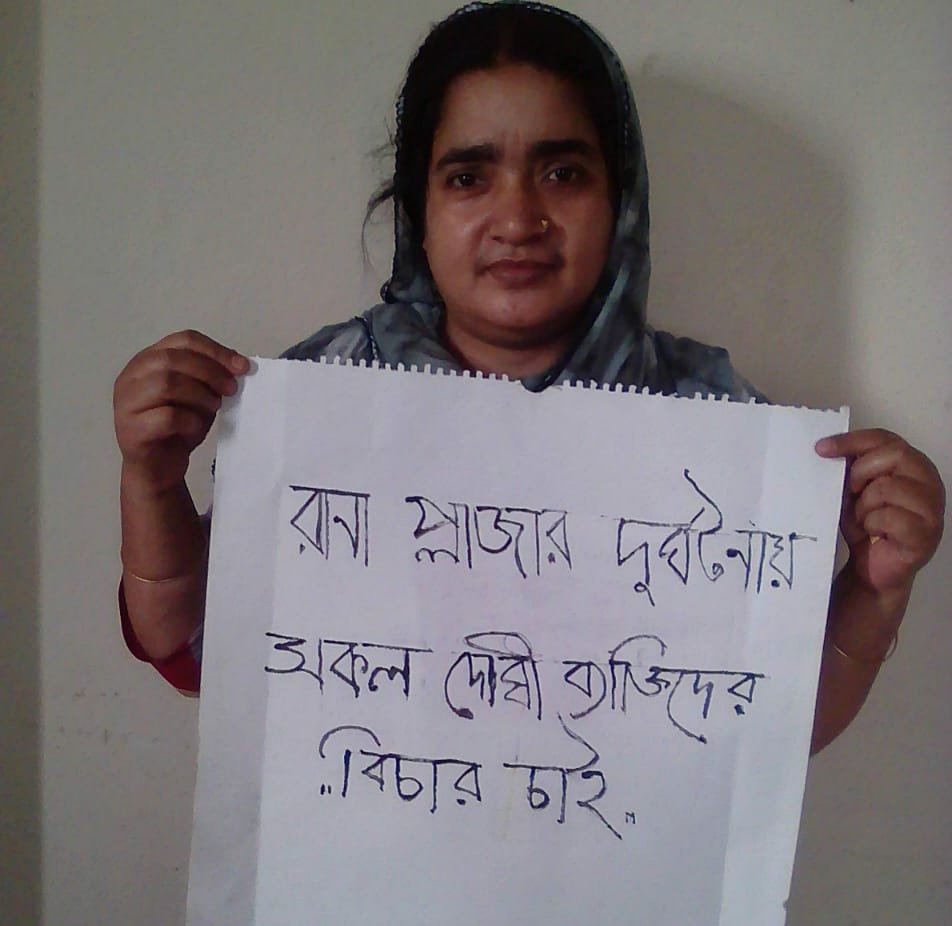 রানা প্লাজার দুর্ঘটনায়
সকল দোষী ব্যক্তিদের
"বিচার চাই"